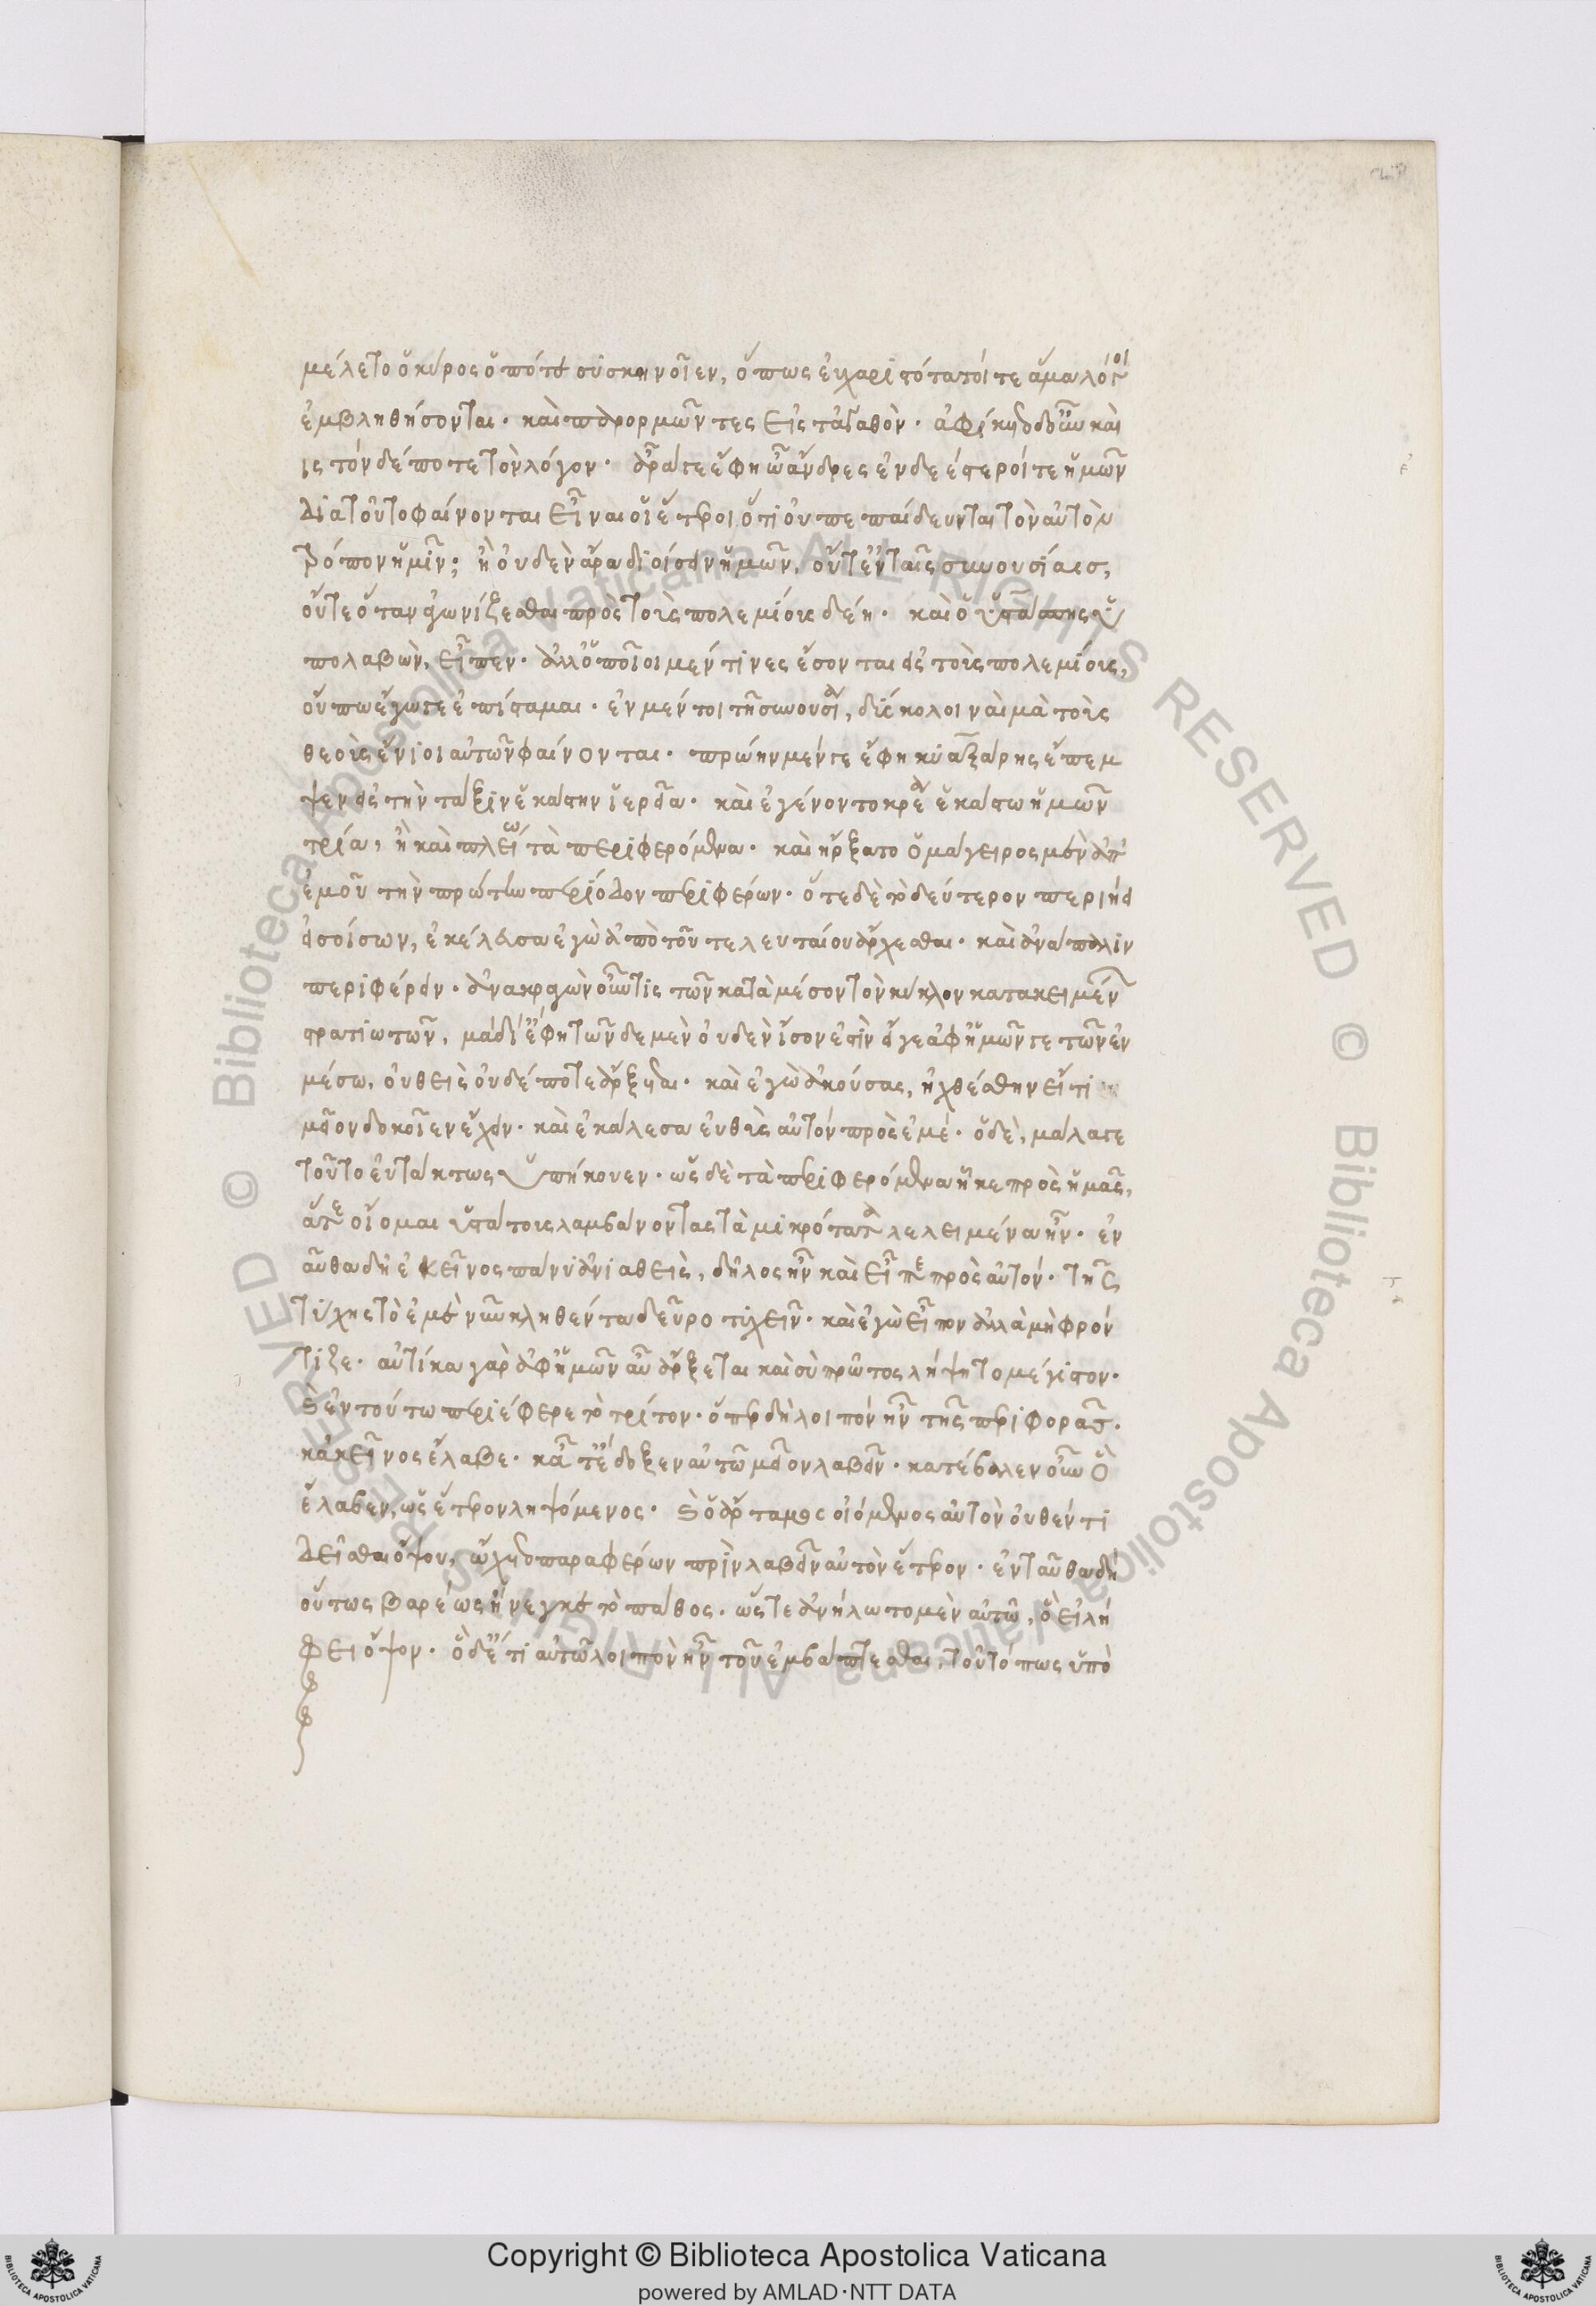 μέλετο ὁ κύρος ὁπότε συσκηνοῖεν, ὅπως εὐχαριστότατοί τε ἅμα λόγοι
ἐμβληθήσονται· καὶ παρορμῶντες εἰς τἀγαθόν· ἀφίκετο δὲ καὶ
εἰς τόνδε ποτε τὸν λόγον· ἆρά γε ἔφη ὦ ἄνδρες ἐνδεέστεροί τε ἡμῶν
διὰ τοῦτο φαίνονται εἶναι οἱ ἕτεροι ὅτι οὐ πεπαίδευνται τὸν αὐτὸν
τρόπον ἡμῖν; ἢ οὐδὲν ἄρα διοίσειν ἡμῶν, οὔτ' ἐν ταῖς συνουσίαις,
οὔτε ὅταν ἀγωνίζεσθαι πρὸς τοὺς πολεμίους δέῃ· καὶ ὁ ὑστάσπης ὑ
πολαβών, εἶπεν· ἀλλ' ὁποῖοι μέν τινες ἔσονται εἰς τοὺς πολεμίους,
οὔπω ἔγωγε ἐπίσταμαι· ἐν μέντοι τῇ συνουσίᾳ, δύσκολοι ναὶ μὰ τοὺς
θεοὺς ἔνιοι αὐτῶν φαίνονται· πρώην μέν γε ἔφη κυαξάρης ἔπεμ
ψεν εἰς τὴν τάξιν ἑκάστην ἱερεῖα· καὶ ἐγένοντο κρέα ἑκάστῳ ἡμῶν
τρία, ἢ καὶ πλείω τὰ περιφερόμενα· καὶ ἤρξατο ὁ μάγειρος μὲν ἀπ'
ἐμοῦ τὴν πρώτην περίοδον περιφέρων· ὅτε δὲ τὸ δεύτερον περιῄει
εἰσοίσων, ἐκέλευσα ἐγὼ ἀπὸ τοῦ τελευταίου ἄρχεσθαι· καὶ ἀνάπαλιν
περιφέρειν· ἀνακραγὼν οὖν τις τῶν κατὰ μέσον τὸν κύκλον κατακειμένων
στρατιωτῶν, μὰ δί' ἔφη τῶνδε μὲν οὐδὲν ἴσον ἐστὶν εἴγε ἀφ' ἡμῶν γε τῶν ἐν
μέσω, οὐθεὶς οὐδέποτε ἄρξεται· καὶ ἐγὼ ἀκούσας, ἠχθέσθην εἴ τι
μεῖον δοκοῖεν ἔχειν· καὶ ἐκάλεσα εὐθὺς αὐτὸν πρὸς ἐμέ· ὁ δὲ, μάλα γε
τοῦτο εὐτάκτως ὑπήκουεν· ὡς δὲ τὰ περιφερόμενα ἧκε πρὸς ἡμᾶς,
ἅτε οἴομαι ὑστάτους λαμβάνοντας τὰ μικρότατα λελειμένα ἦν· ἐν
αῦθα δὴ ἐκεῖνος πάνυ ἀνιαθεὶς, δῆλος ἦν καὶ εἶπε πρὸς αὐτόν· τῆς
τύχης τὸ ἐμὲ νῦν κληθέντα δεῦρο τυχεῖν· καὶ ἐγὼ εἶπον ἀλλὰ μὴ φρόν
τιζε· αὐτίκα γὰρ ἀφ' ἡμῶν αὖ ἄρξεται καὶ σὺ πρῶτος λήψῃ τὸ μέγιστον·
καὶ ἐν τούτω περιέφερε τὸ τρίτον· ὅπερ δὴ λοιπόν ἦν τῆς περιφορᾶς·
κἀκεῖνος ἔλαβε· κᾆτ' ἔδοξεν αὐτῶ μεῖον λαβεῖν· κατέβαλεν οὖν ὃ
ἔλαβεν, ὡς ἕτερον ληψόμενος· καὶ ὁ ἄρταμος οἰόμενος αὐτὸν οὐθέν τι
δεῖσθαι ὄψου, ᾤχετο παραφέρων πρὶν λαβεῖν αὐτὸν ἕτερον· ἐνταῦθα δὴ
οὕτως βαρέως ἤνεγκε τὸ πάθος· ὥστε ἀνήλωτο μὲν αὐτῶ, ὃ εἰλή
φει ὄψον· ὃ δ' ἔτι αὐτῶ λοιπὸν ἦν τοῦ ἐμβάπτεσθαι, τοῦτό πως ὑπὸ